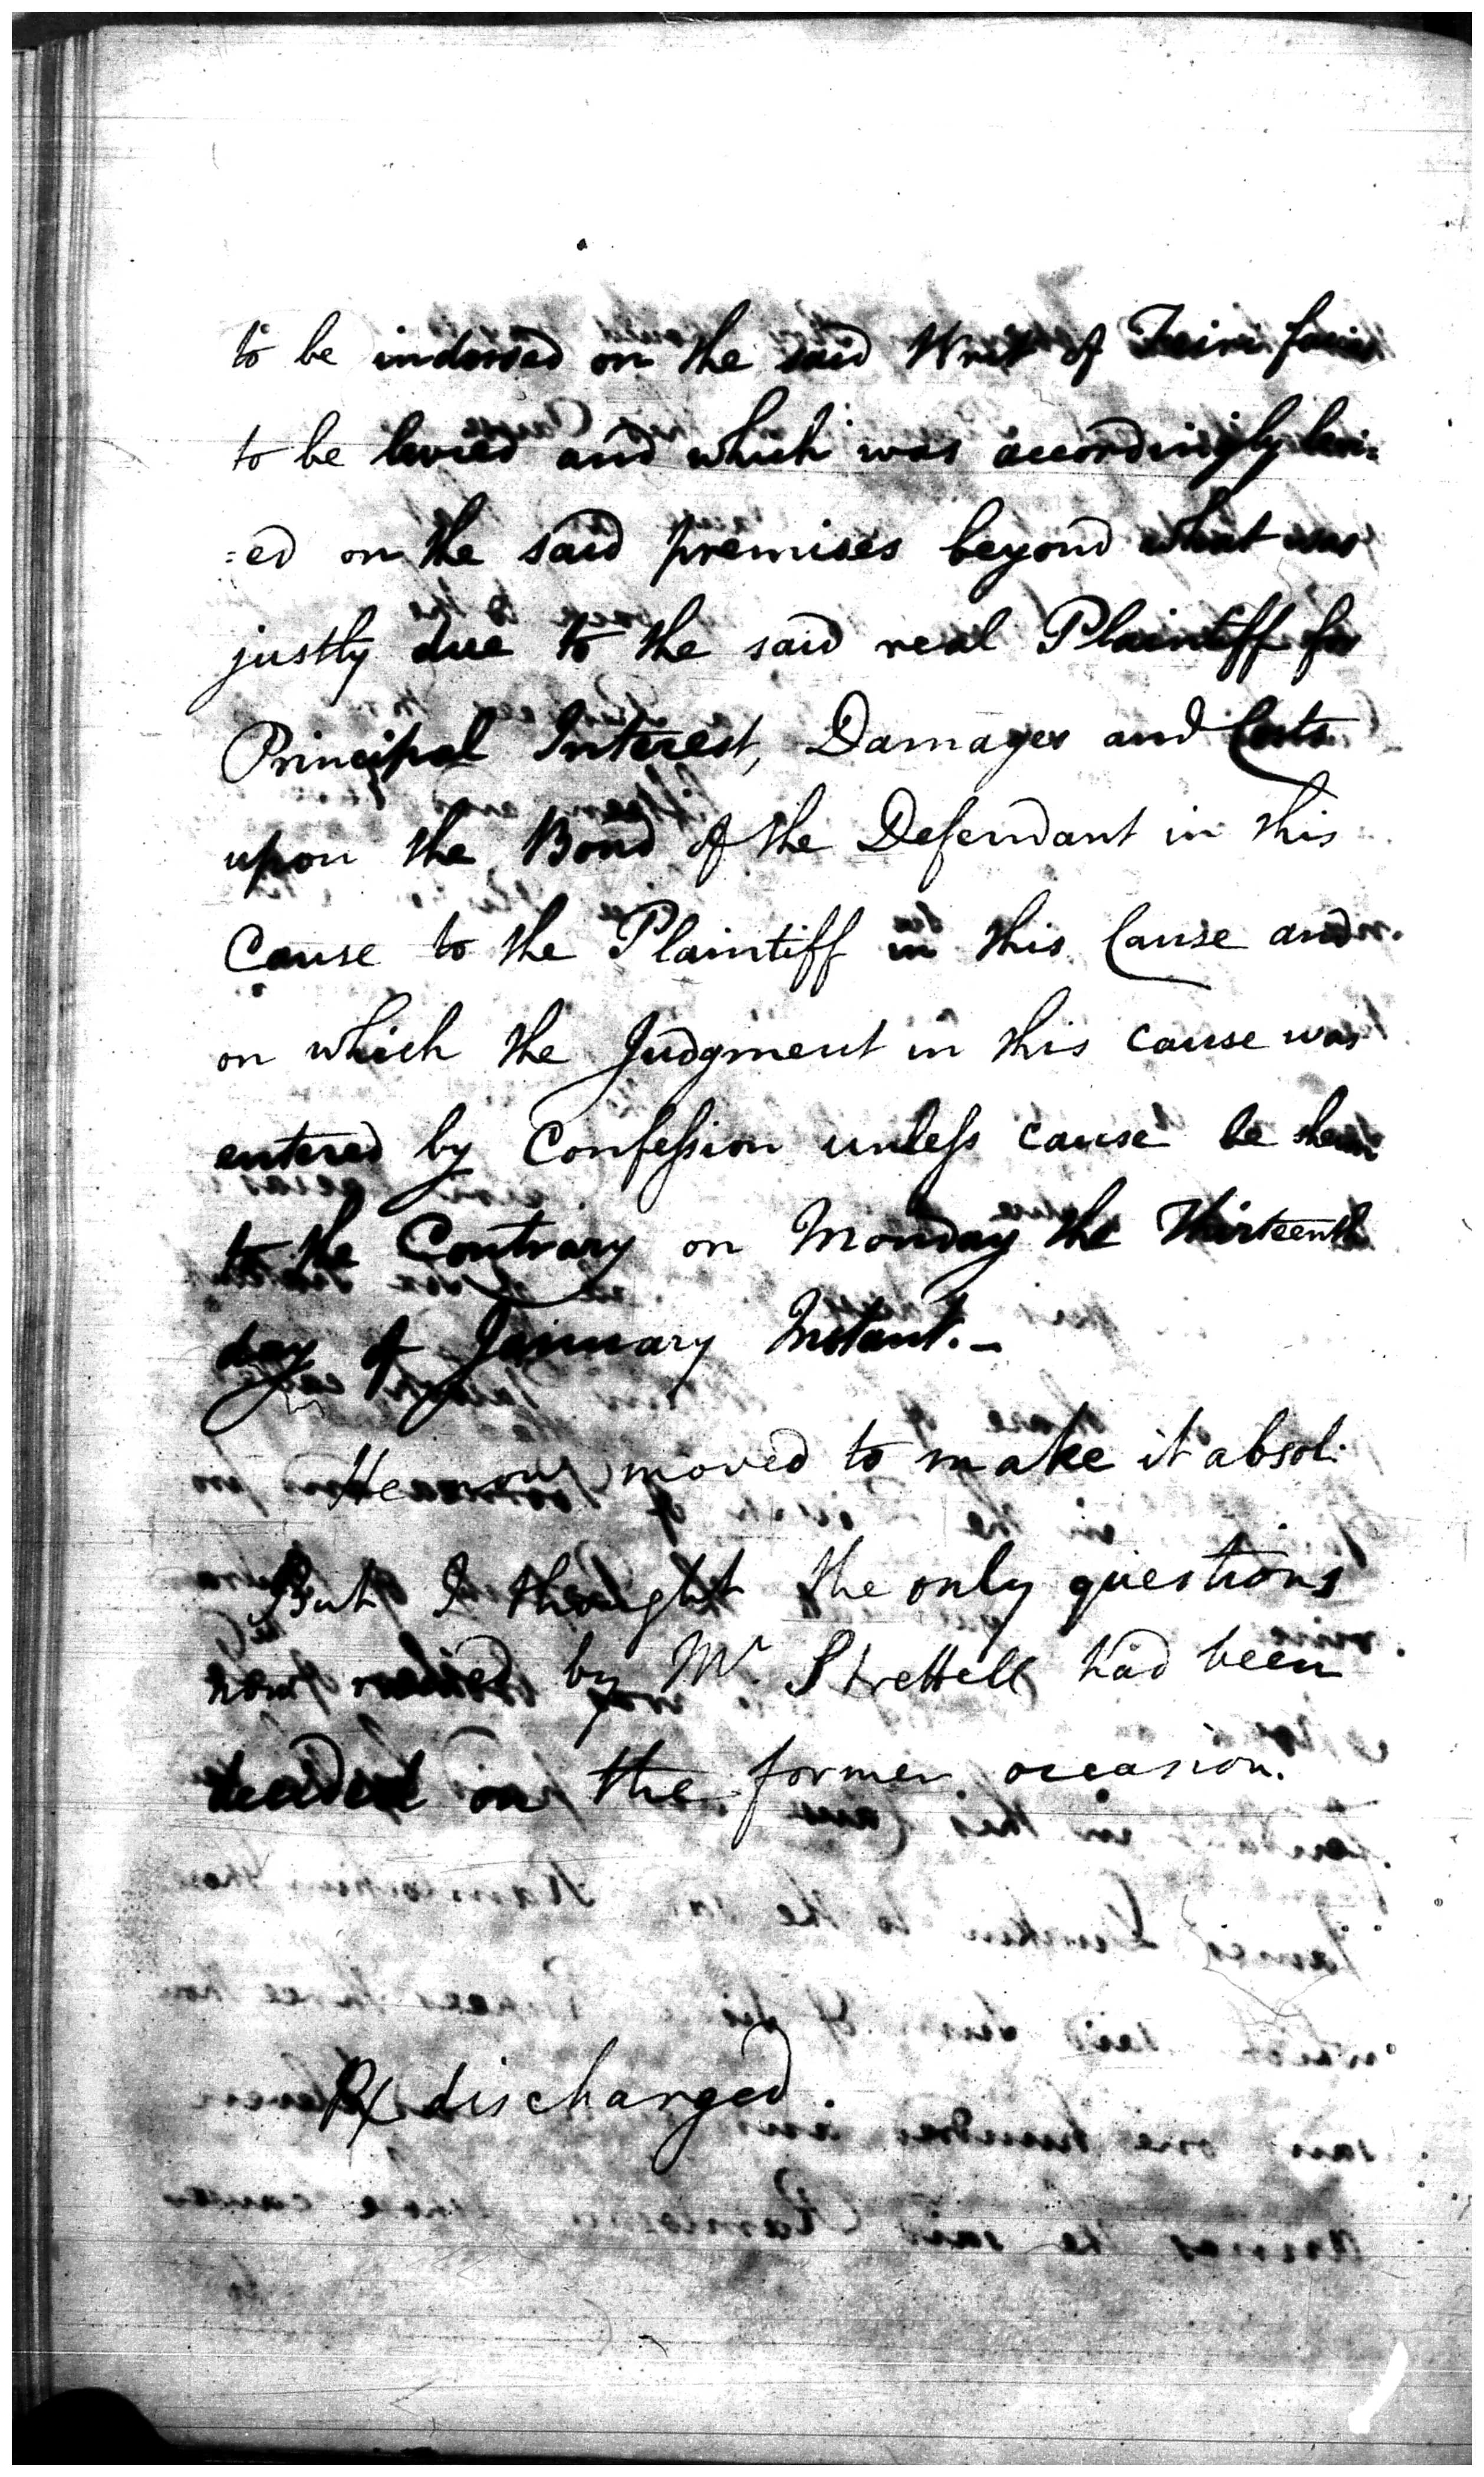 to be indorsed on the said Writ of Fieri facias
to be levied and which was accordingly levi=
=ed on the said premises beyond what was
justly due to the said real Plaintiff for
Principal Interest, Damages and Costs
upon the Bond of the Defendant in this
Cause to the Plaintiff in this Cause and
on which the Judgment in this cause was
entered by Confession unless cause be shewn
to the Contrary on Monday the Thirteenth
day of January Instant.—
He now moved to make it absol:
But I thought the only questions
now raised by Mr Strettell had been
decided on the former occasion.
R discharged